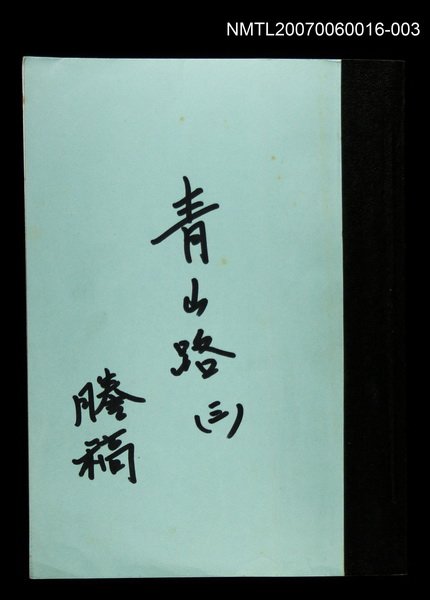 NMTL20070060016-003
青山路
(三)
謄稿